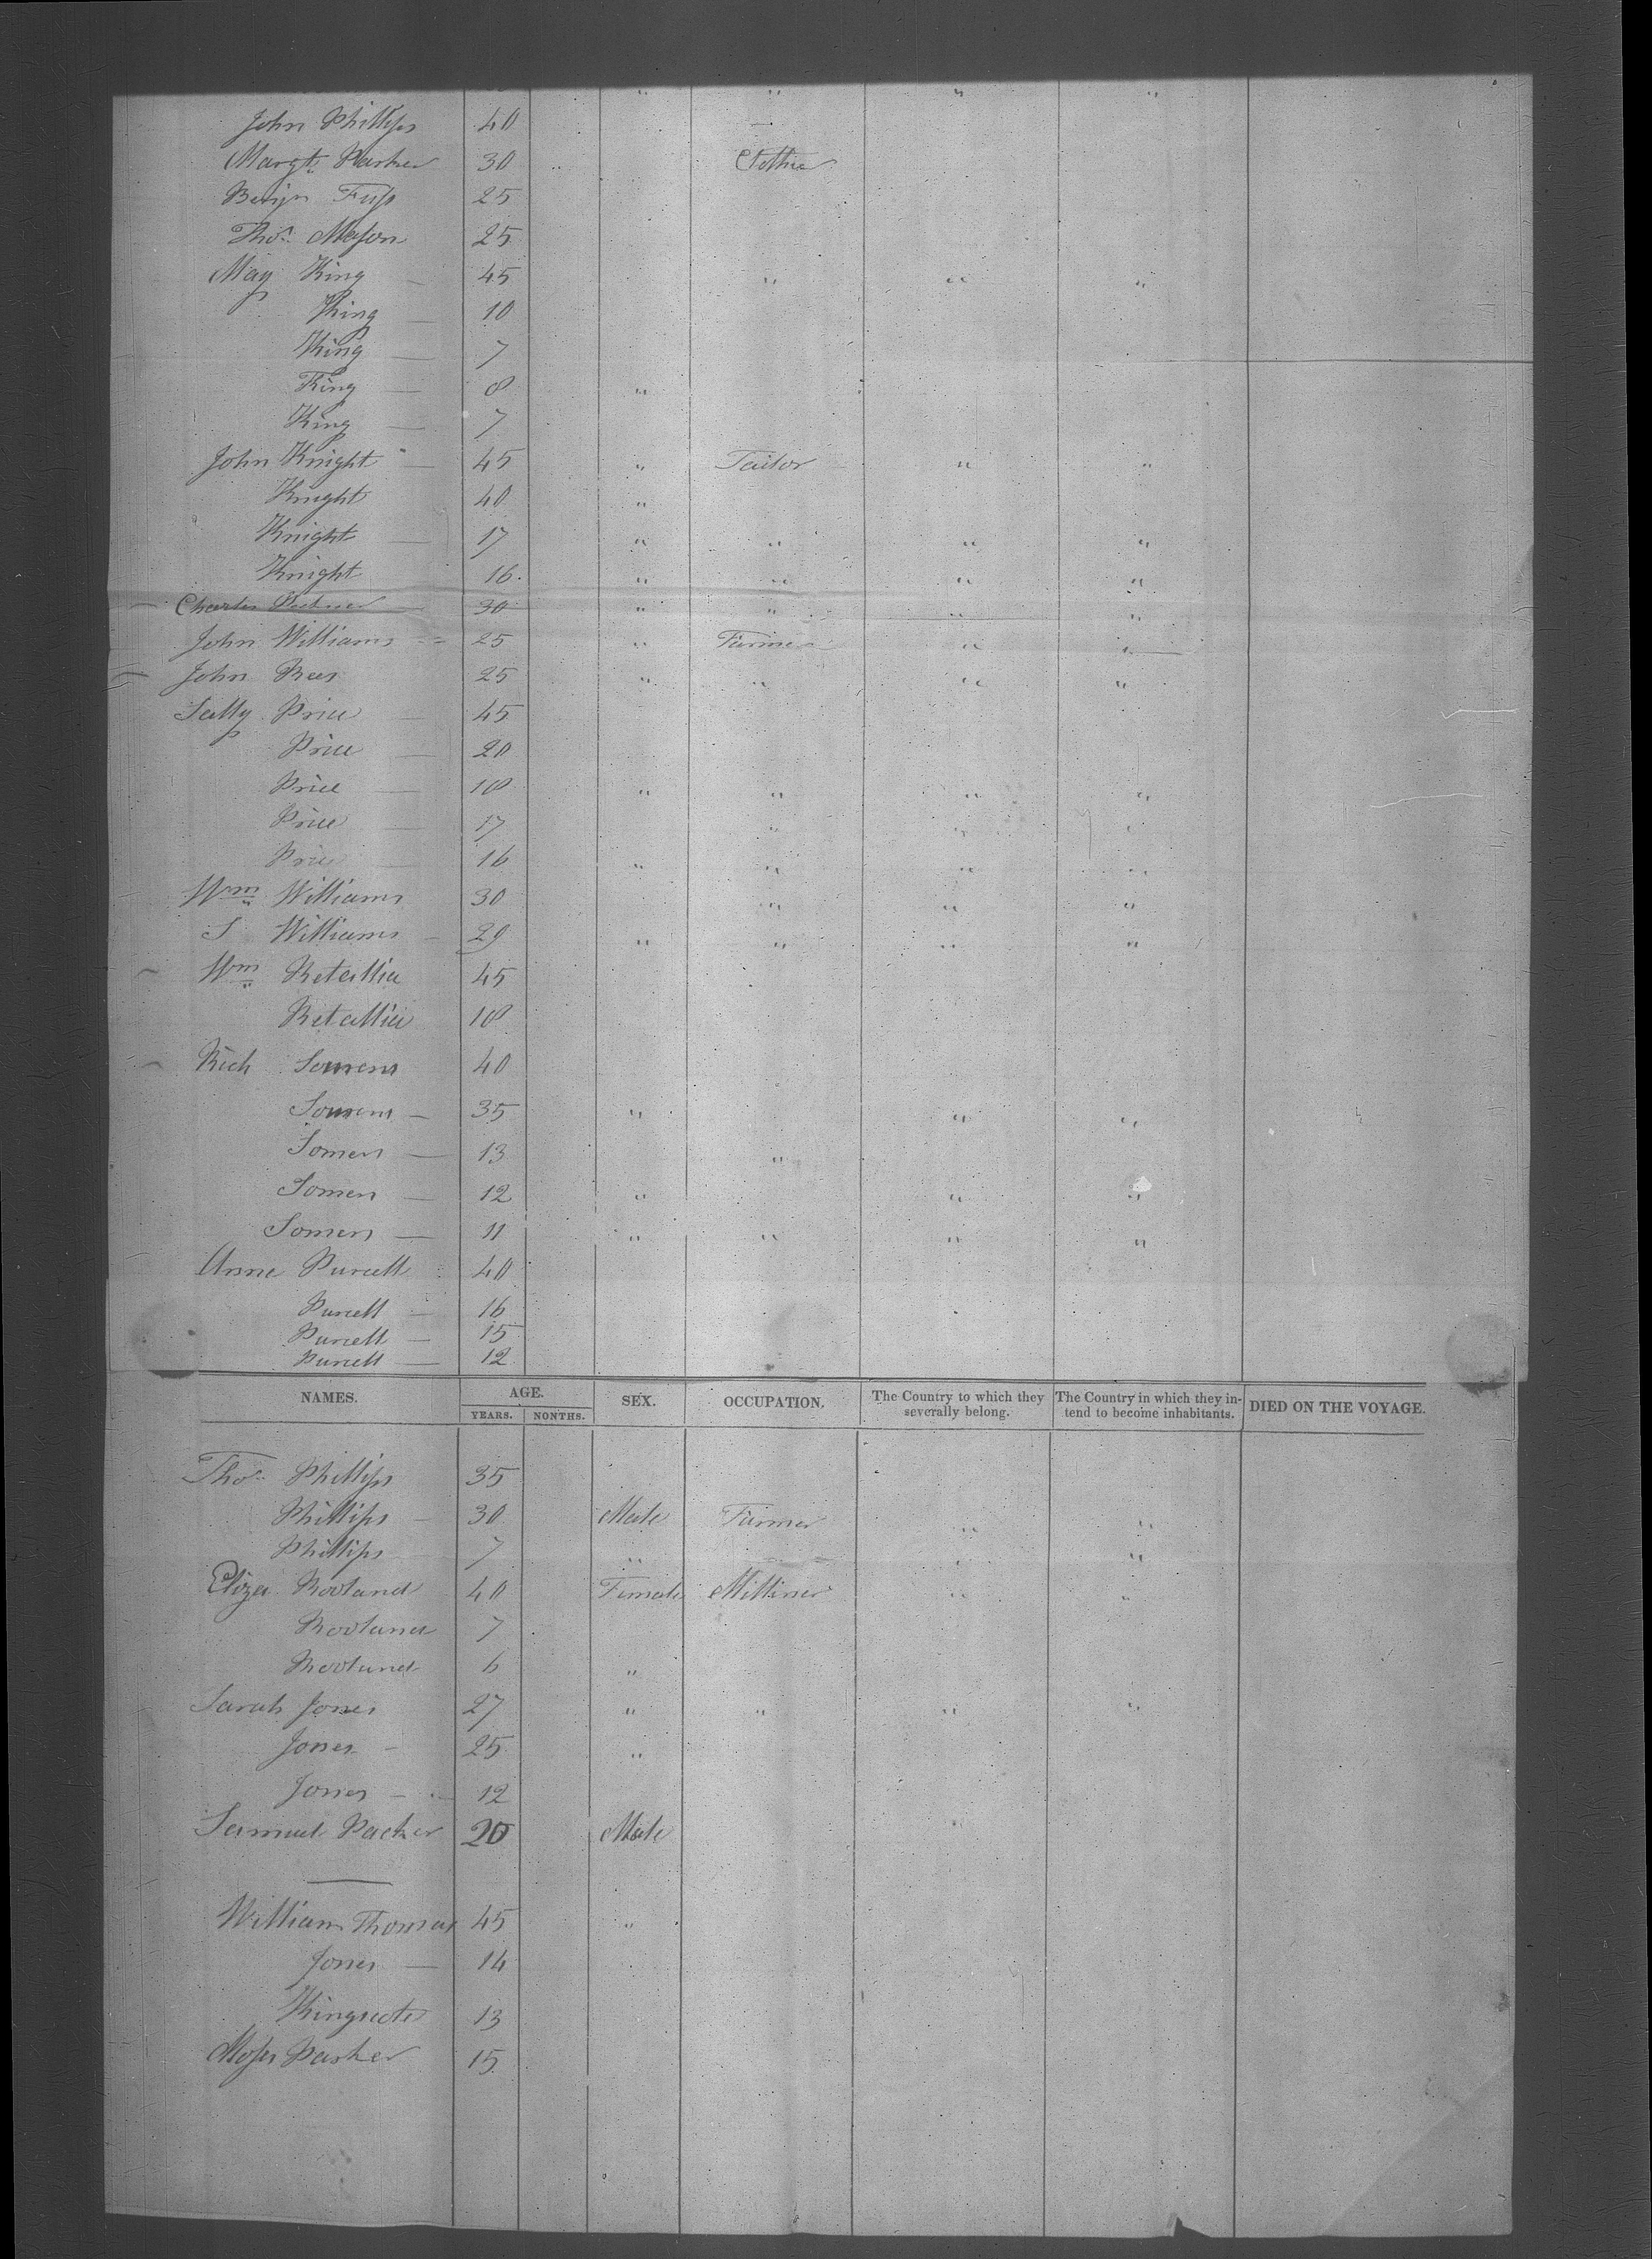 " " " "
John Phillips 40
Margt. Parker 30
Benjn 25
Thos. Mason 25
May King — 45 " " "
King — 10
King — 7
King — 8 "
King — 7
John Knight — 45 " Tailor " "
Knight 40 "
Knight — 17 " " " "
Knight 16. " " " "
Charles 30 " " " "
John Williams 25 " Farmer " "
John Rees 25 " " " "
Sally Price — 45
Price — 20
Price — 18 " " " "
Price — 17 " " "
Price — 16 " " " "
Wm Williams 30 " " "
S Williams — 29 " " " "
Wm Retallia 45
Retallia 18
Rich Somers 40
Somers — 35 " " "
Somers — 13 "
Somers — 12 " " "
Somers — 11 " " " "
Anne Purcell 40
Purcell — 16
Purcell — 15
Purcell — 12
NAMES. AGE. SEX. OCCUPATION. The Country to which they severally belong. The Country in which they in- tend to become inhabitants. DIED ON THE VOYAGE.
YEARS. NONTHS.
Thos. Phillips 35
Phillips — 30 Male Farmer " "
Phillips 7 " " " "
Eliza Rooland 40 Female Milliner " "
Rooland 7
Rooland 6 "
Sarah Jones 27 " " " "
Jones — 25 "
Jones — 12
Samuel Packer 20 Male
William Thomas 45 "
Jones — 14
Kingscote 13
Moses Parker 15